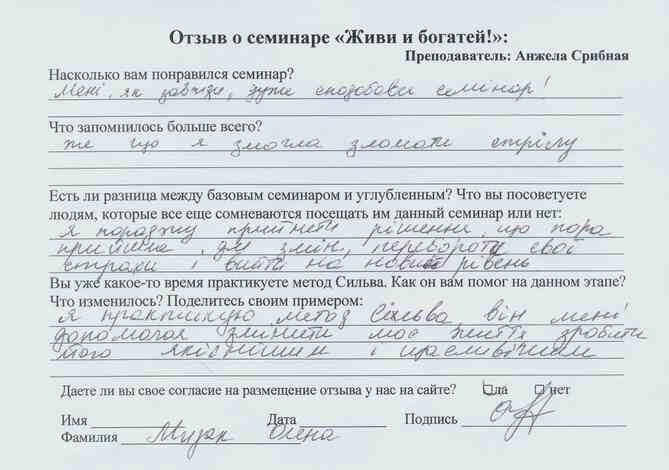 Отзыв о семинаре «Живи и богатей!»:
Преподаватель: Анжела Срибная
Насколько вам понравился семинар?
Мені, як завжди, дуже сподобався семінар!
Что запомнилось больше всего?
те що я змогла зломати стрілу
Есть ли разница между базовым семинаром и углубленным? Что вы посоветуете
людям, которые все еще сомневаются посещать им данный семинар или нет:
Я пораджу прийняти рішення, що пора
прийшла для змін, перебороти свої
страхи і вийти на новий рівень
Вы уже какое-то время практикуете метод Сильва. Как он вам помог на данном этапе?
Что изменилось? Поделитесь своим примером:
Я практикую метод Сільва він мені
допомагає змінити моє життя зробити
його якіснішим і щасливішим
Даете ли вы свое согласие на размещение отзыва у нас на сайте? да нет
Имя Дата Подпись
Фамилия Олена